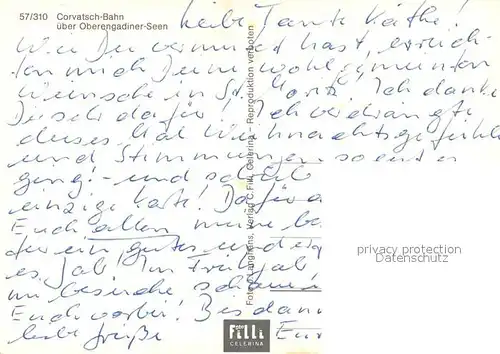 57/310 Corvatsch-Bahn
über Oberengadiner-Seen
Liebe Tante Käthe!
Wie Du vermutet hast, erreich-
ten mich Deine wohlgemeinten
Wünsche in St. Moritz. Ich danke
Dir sehr dafür! Ich verdrängte
dieses Mal Weihnachtsgefühle
und Stimmungen so gut es
ging! - und schrieb
einzige Karte! Dafür
Euch allen meine be
für ein gutes und
es Jahr! Im Frühjahr
im
Euch vorbei! Bis dann
liebe Grüße
Foto E. Langhans, Verlag E. Filli, Celerina – Reproduktion verboten
privacy protection
Datenschutz
foto
Filli
CELERINA